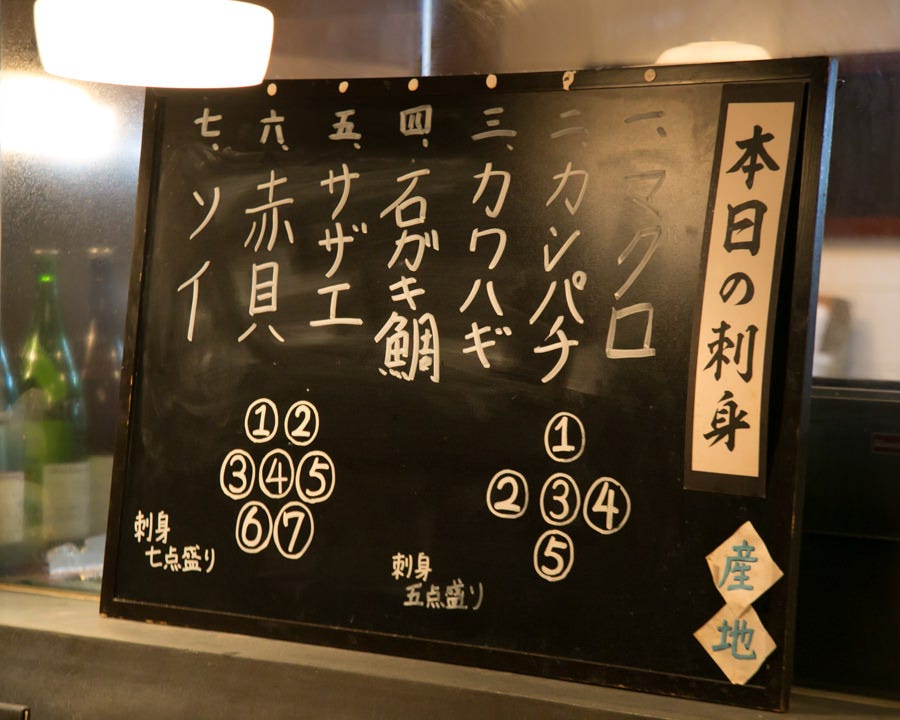 本日の刺身
産地
一、マグロ
二、カンパチ
三、カワハギ
四、石ガキ鯛
五、サザエ
六、赤貝
七、ソイ
①
②③④
⑤
刺身
五点盛り
①②
③④⑤
⑥⑦
刺身
七点盛り